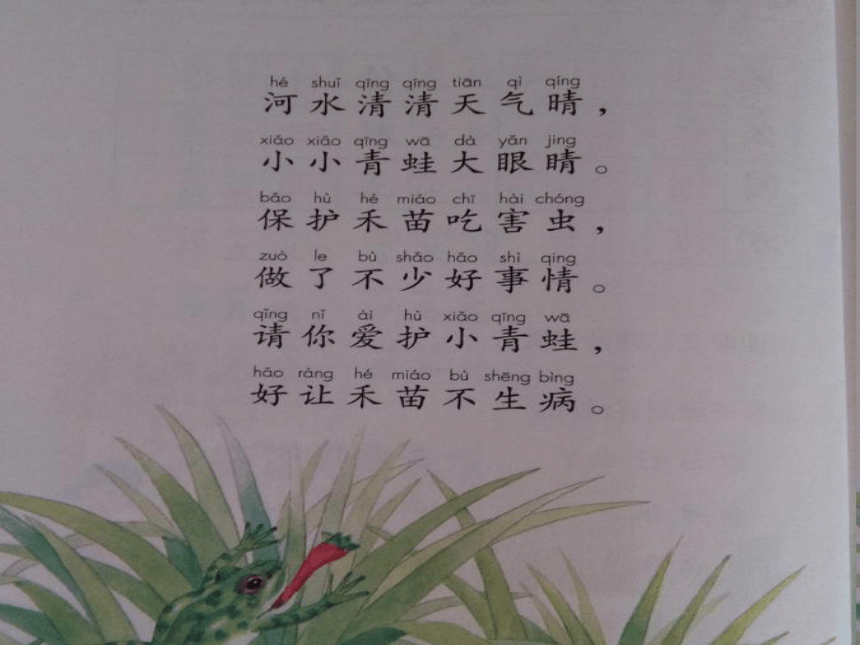 hé shuǐ qīng qīng tiān qì qíng
河水清清天气晴，
xiǎo xiǎo qīng wā dà yǎn jing
小小青蛙大眼睛。
bǎo hù hé miáo chī hài chóng
保护禾苗吃害虫，
zuò le bù shǎo hǎo shì qing
做了不少好事情。
qǐng nǐ ài hù xiǎo qīng wā
请你爱护小青蛙，
hǎo ràng hé miáo bù shēng bìng
好让禾苗不生病。